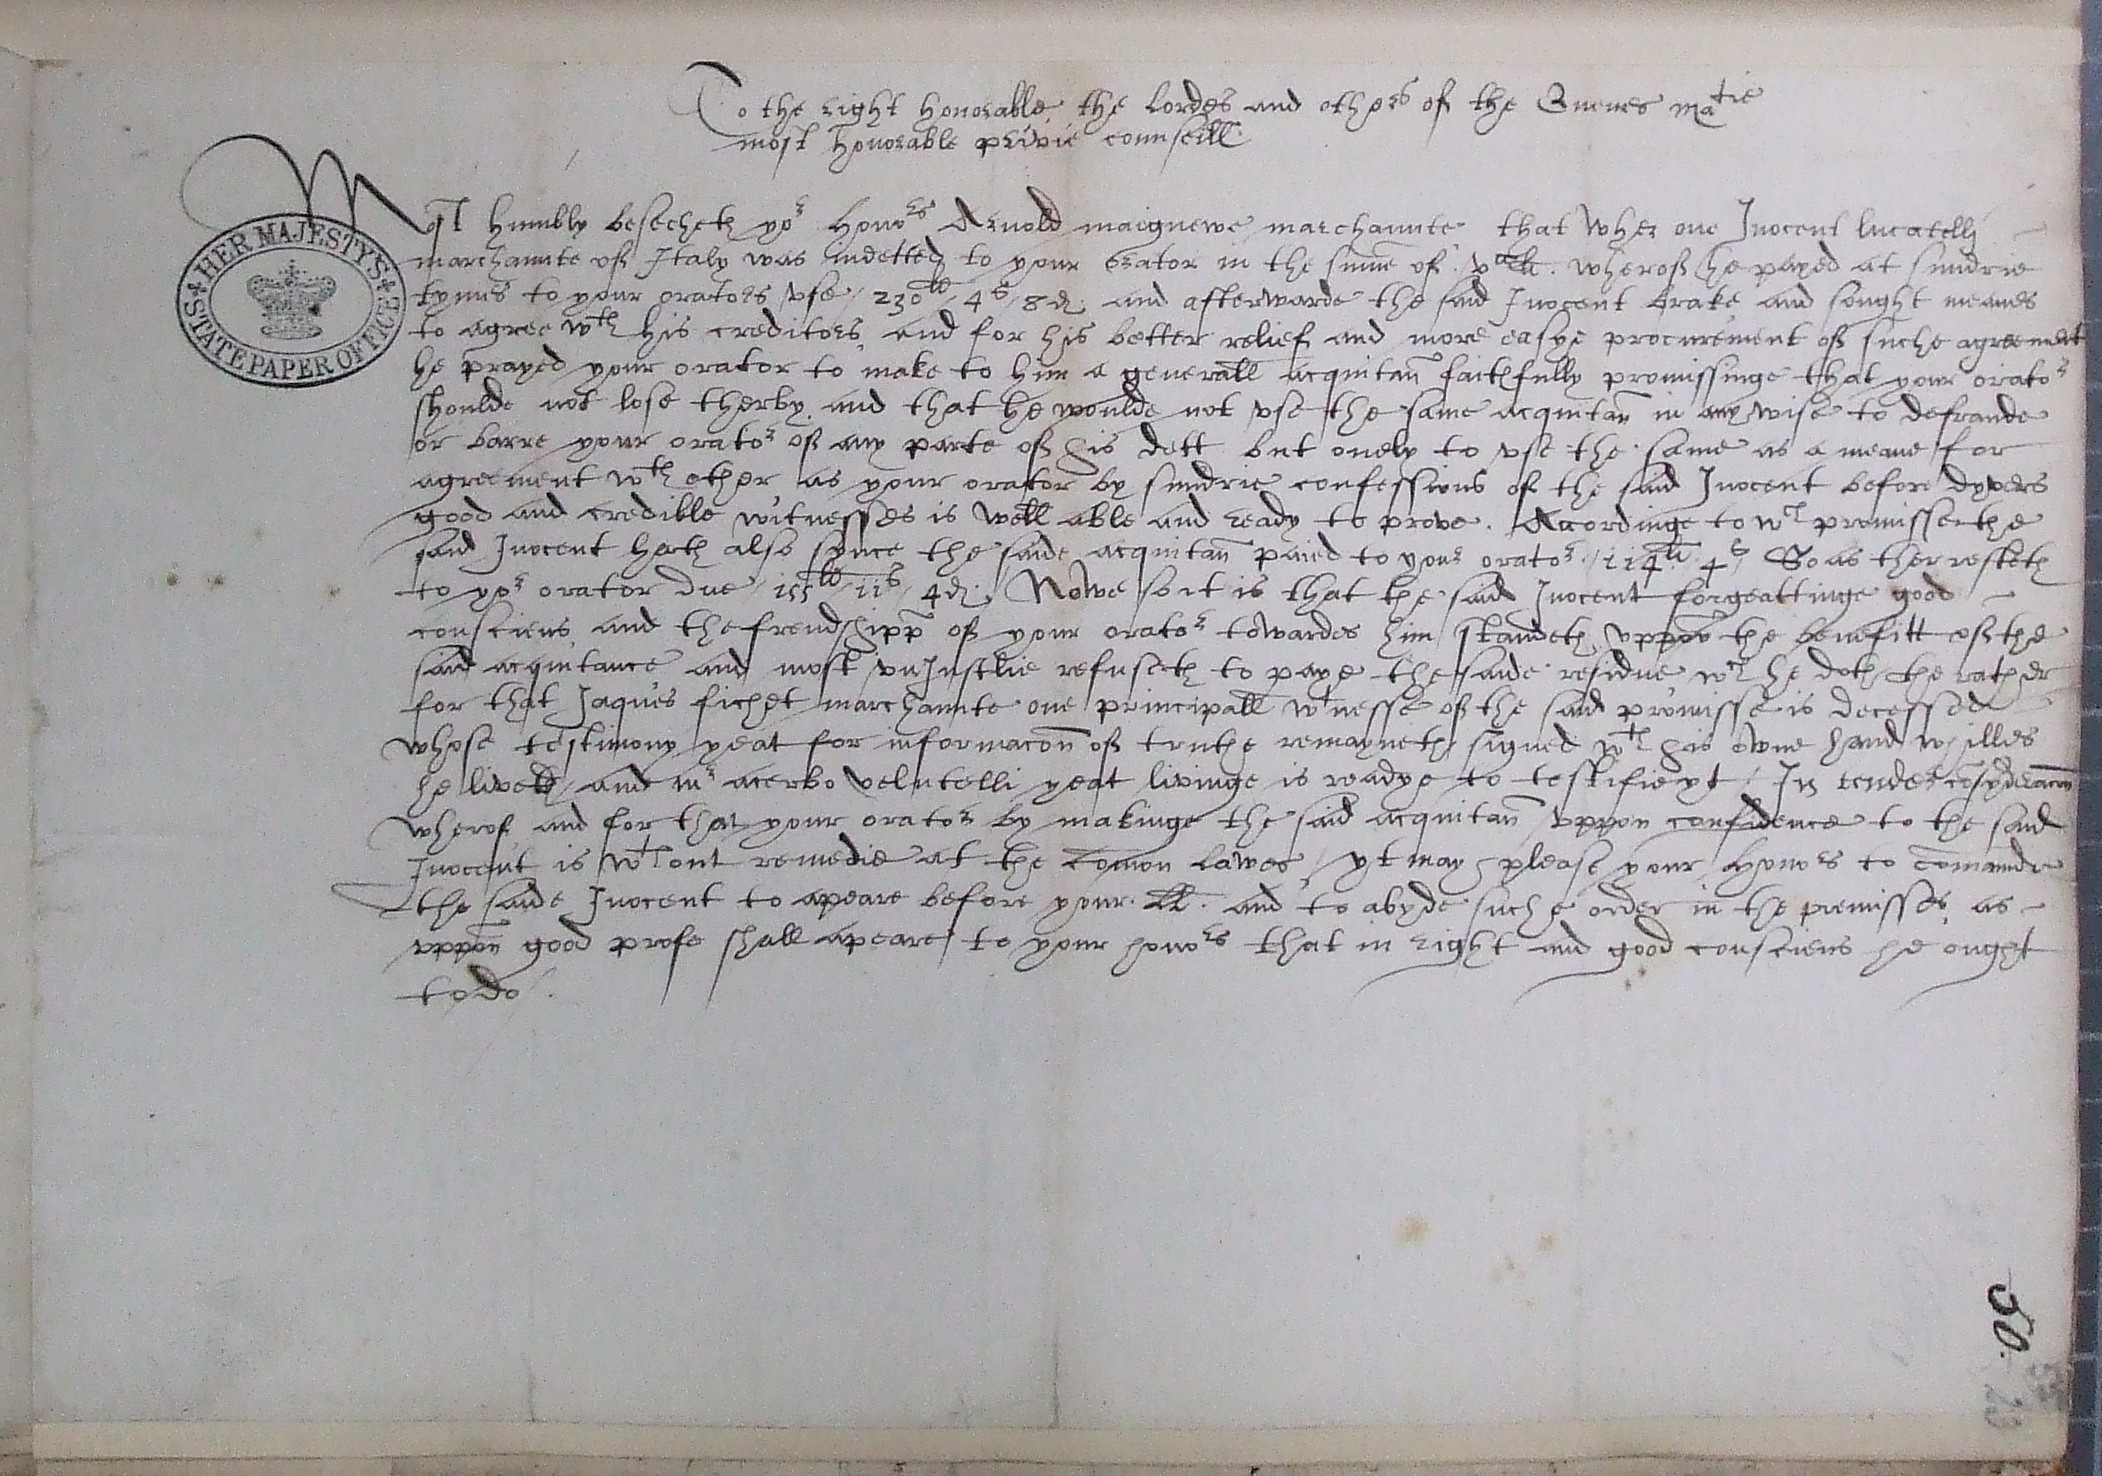 To the right honorable the Lordes and others of the Quenes Matie
most honorable privie counseill
Most humbly besecheth yor honors Arnold maignewe marchaunte that wher one Inocent lucatelli
marchaunte of Italy was indetted to your orator in the sume of vc li. wherof he payed at sundrie
tymes to your orators vse / 230li / 4s / 8d. and afterwarde the said Inocent brake and sought meanes
to agree wth his creditors and for his better relief and more easye procurement of suche agreement
he prayed your orator to make to him a generall acquitan faithfully promissinge that your orator
shoulde not lose therby and that he woulde not vse the same acquitan in any wise to defraude
or barre your orator of any parte of his dett but onely to vse the same as a meane for
agreement wth other as your orator by sundrie confessions of the said Inocent before dyvers
good and credible witnesses is well able and ready to prove. Accordinge to wch promisse the
said Inocent hath also synce the saide acquitan paied to your orator / 114li 4s / So as ther resteth
to yor orator due / 155li / 11s / 4d. Nowe so it is that the said Inocent forgeattinge good
consciens and the frendshipp of your orator towardes him standeth vppon the benifitt of the
said acquitance and most vnJustlie refuseth to paye the saide residue wch he doth the rather
for that Jaques fichet marchaunte one principall wtnesse of the said promisse is decessed
whose testimony yeat for informacon of truthe remayneth signed wth his owne hand whilles
he lived / and mr acerbo velutelli yeat livinge is readye to testifie yt / In tender cosyderacon
wherof and for that your orator by makinge the said acquitan vppon confidence to the said
Inocent is wthout remedie at the Comon Lawes / yt may please your honors to comaunde
the saide Inocent to apeare before your. LL. and to abyde suche order in the premisses as
vppon good profe shall apeare to your honors that in right and good consciens he ought
to do.
HER MAJESTY'S
STATE PAPER OFFICE
50.